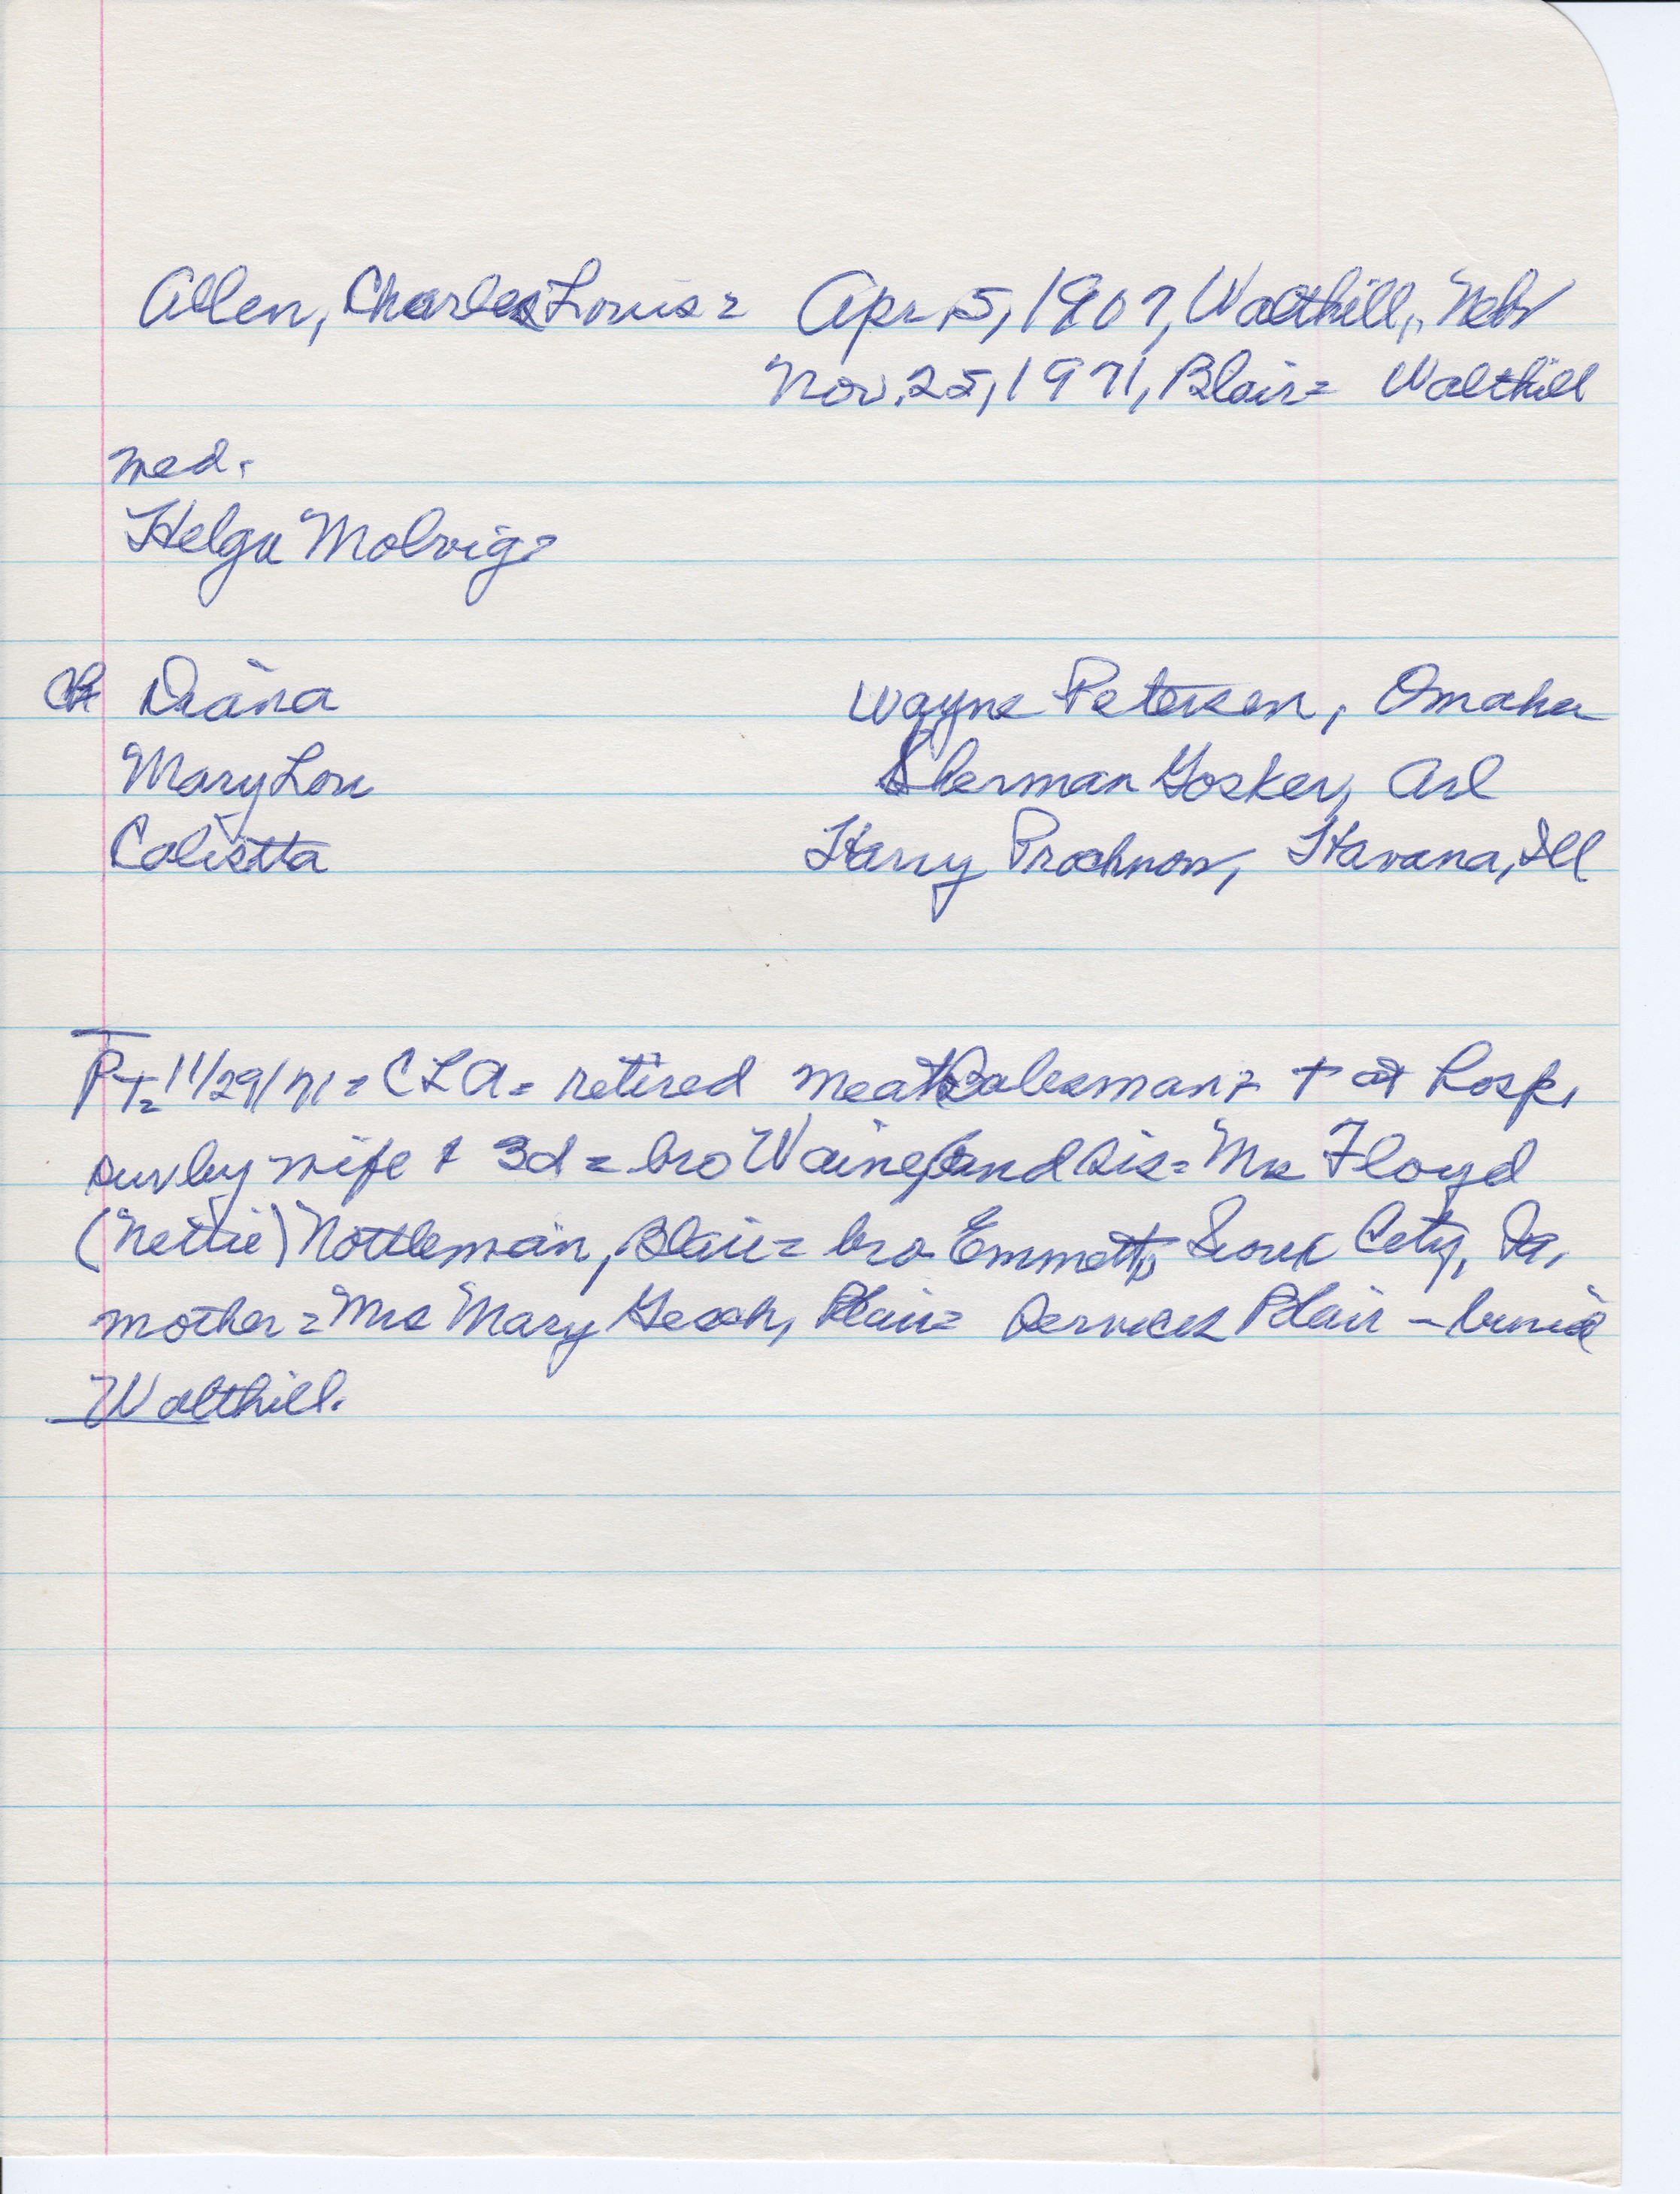 Allen, Charles Louis = Apr 5, 1907, Walthill, Nebr
Nov. 25, 1971, Blair = Walthill
med.
Helga Molvig =
Ch Diana Wayne Petersen, Omaha
Mary Lou Sherman Gosker, Arl
Calistta Harry Prochnow, Havana, Ill
PT = 11/29/71 = CLA = retired meat salesman = + at hosp,
surv by wife + 3d = bro Waine and sis = Mrs Floyd
(Nettie) Nottleman, Blair = bro Emmett, Sioux City, Ia,
mother = Mrs Mary Blair = Services Blair -
Walthill.